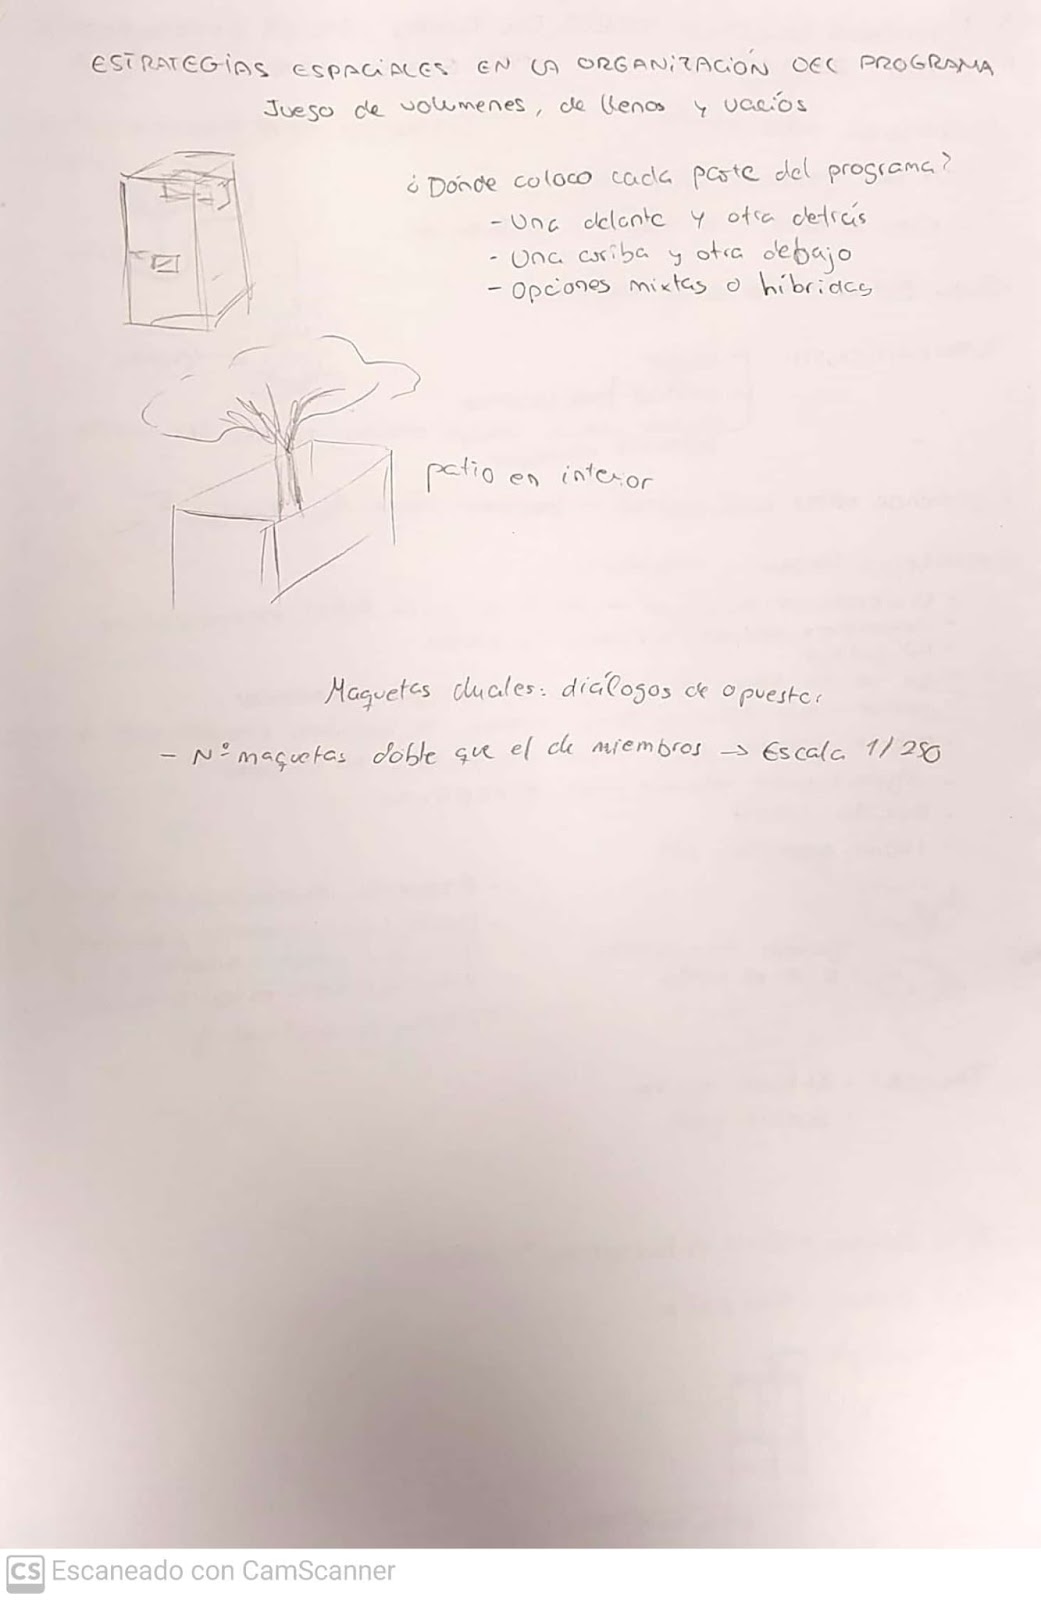 ESTRATEGIAS ESPACIALES EN LA ORGANIZACIÓN DEL PROGRAMA
Juego de volumenes, de llenos y vacíos
¿Dónde coloco cada parte del programa?
- Una delante y otra detrás
- Una arriba y otra debajo
- Opciones mixtas o híbridas
patio en interior
Maquetas duales: diálogos de opuestos
- Nº maquetas doble que el de miembros → Escala 1/250
CS Escaneado con CamScanner